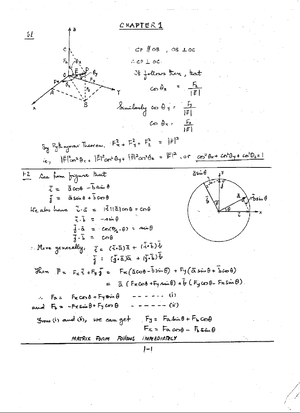 CHAPTER 1
1.1
CP ∥ OB, OB ⊥ OC
∴ CP ⊥ OC
It follows then, that
cos θx = Fx / |F|
Similarly cos θy = Fy / |F|
cos θz = Fz / |F|
By Pythagorean Theorem, Fx² + Fy² + Fz² = |F|²
i.e., |F|²cos²θx + |F|²cos²θy + |F|²cos²θz = |F|², or cos²θx + cos²θy + cos²θz = 1
1.2 See from figure that
i = a cosθ - b sinθ
j = a sinθ + b cosθ
We also have i·a = cosθ
i·b = -sinθ
j·a = cos(90-θ) = sinθ
j·b = cosθ
∴ More generally, i = (i·a)a + (i·b)b
j = (j·a)a + (j·b)b
Then F = Fx i + Fy j = Fx(a cosθ - b sinθ) + Fy(a sinθ + b cosθ)
= a(Fx cosθ + Fy sinθ) + b(Fy cosθ - Fx sinθ)
∴ Fa = Fx cosθ + Fy sinθ ------ (i)
and Fb = -Fx sinθ + Fy cosθ ------ (ii)
From (i) and (ii), we can get Fy = Fa sinθ + Fb cosθ
Fx = Fa cosθ - Fb sinθ
MATRIX FORM FOLLOWS IMMEDIATELY
1-1